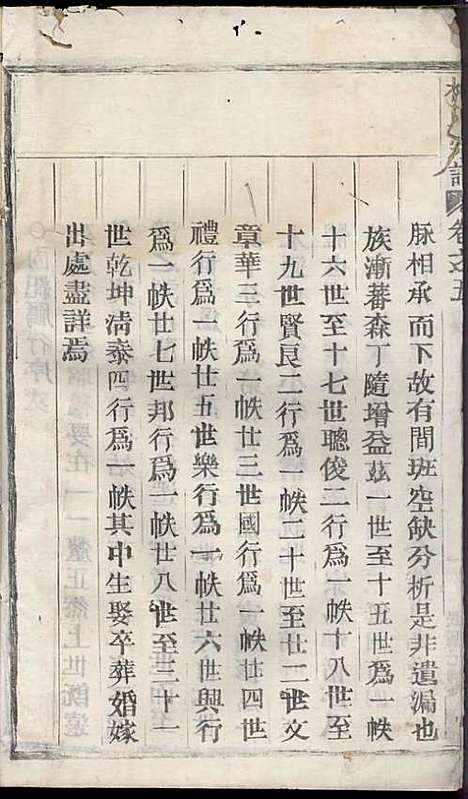 脉相承而下故有間班空缺分析是非遺漏也
族漸蕃森丁隨增益玆一世至十五世爲一帙
十六世至十七世聰俊二行爲一帙十八世至
十九世賢良二行爲一帙二十世至廿二世文
章華三行爲一帙廿三世國行爲一帙廿四世
禮行爲一帙廿五世樂行爲一帙廿六世興行
爲一帙廿七世邦行爲一帙廿八世至三十一
世乾坤淸泰四行爲一帙其中生娶卒葬婚嫁
出處盡詳焉
卷之五